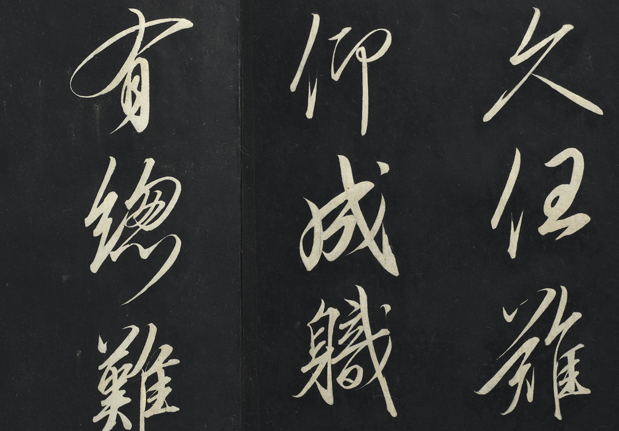 久任難
仰成職
有總難